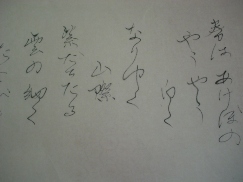 春はあけぼの
やうやう
白く
なりゆく
山際
紫だちたる
雲の細く